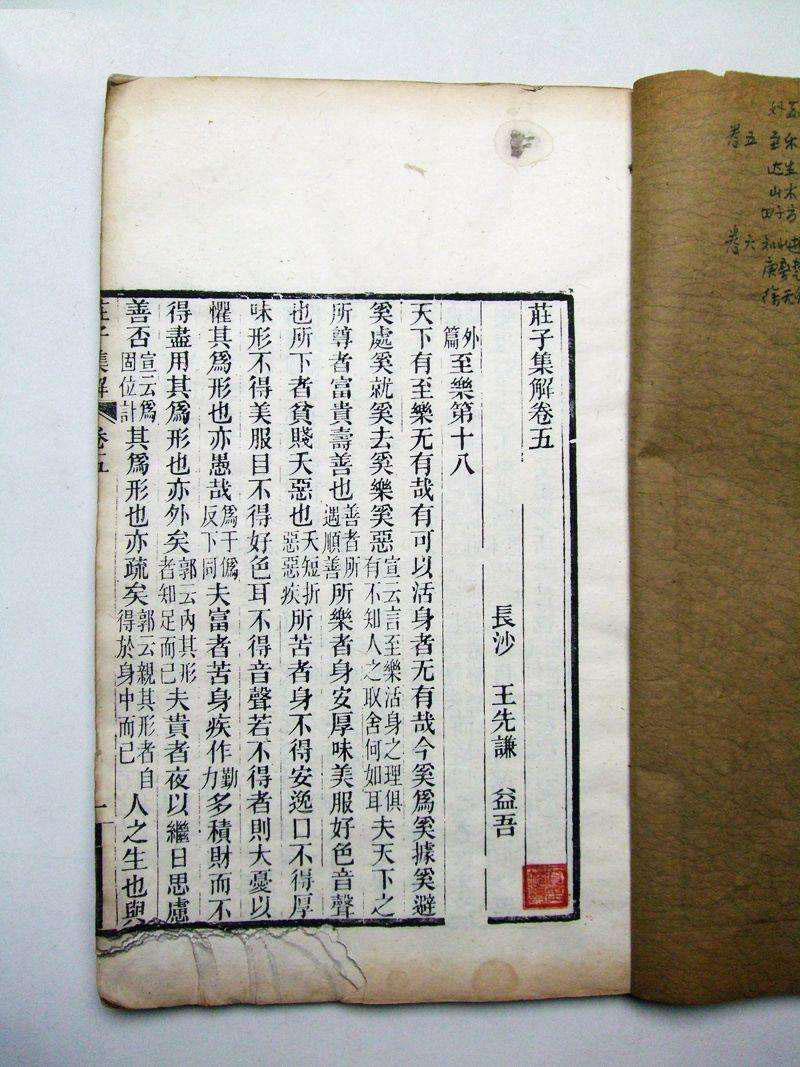 卷五 至乐
达生
山木
田子方
卷六 知北
庚桑楚
徐无
莊子集解卷五
長沙 王先謙 益吾
外篇至樂第十八
天下有至樂无有哉有可以活身者无有哉今奚爲奚據奚避
奚處奚就奚去奚樂奚惡宣云言至樂活身之理俱有不知人之取舍何如耳夫天下之
所尊者富貴壽善也善者所遇順善所樂者身安厚味美服好色音聲
也所下者貧賤夭惡也夭短折惡惡疾所苦者身不得安逸口不得厚
味形不得美服目不得好色耳不得音聲若不得者則大憂以
懼其爲形也亦愚哉爲于僞反下同夫富者苦身疾作勤力多積財而不
得盡用其爲形也亦外矣郭云內其形者知足而已夫貴者夜以繼日思慮
善否宣云爲固位計其爲形也亦疏矣郭云親其形者自得於身中而已人之生也與
莊子集解 卷五 一